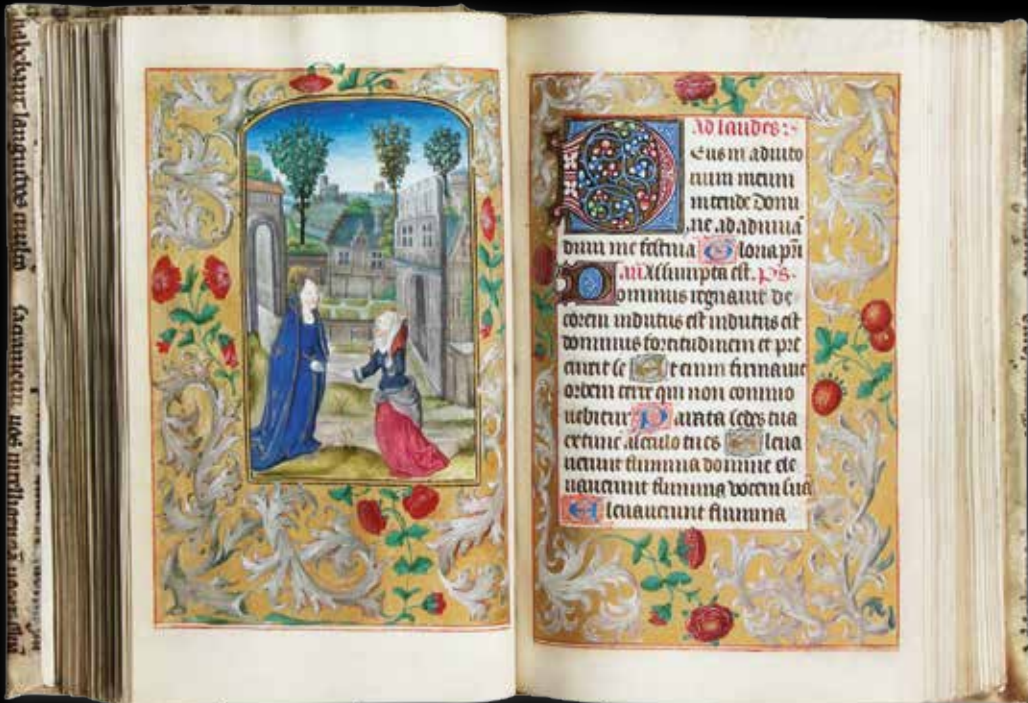 Ad laudes:
Deus in adiuto
rium meum
intende Domi
ne ad adiuuā
dum me festina Gloria pri
an Assumpta est. Ps.
Dominus regnauit de
corem indutus est indutus est
dominus fortitudinem et pre
cinxit se Et enim firmauit
orbem terre qui non commo
uebitur Parata sedes tua
ex tunc a seculo tu es Eleua
uerunt flumina domine ele
uauerunt flumina vocem suā
Eleuauerunt flumina